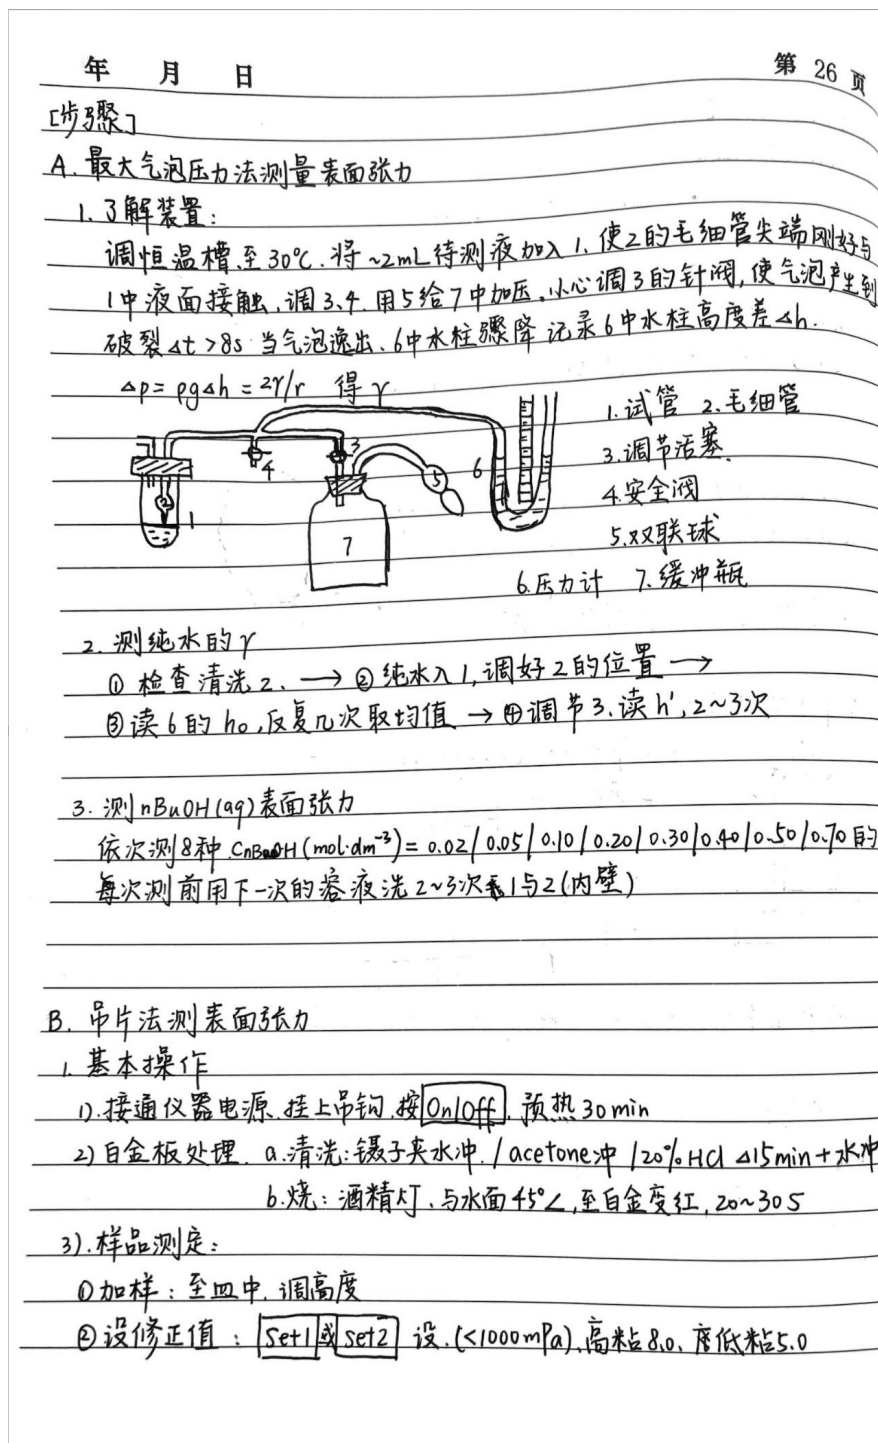 年 月 日 第 26 页
[步骤]
A. 最大气泡压力法测量表面张力
1. 了解装置：
调恒温槽至30℃. 将~2mL待测液加入1. 使2的毛细管尖端刚好与
1中液面接触, 调3、4. 用5给7中加压. 小心调3的针阀, 使气泡产生到
破裂△t>8s 当气泡逸出、6中水柱骤降 记录6中水柱高度差△h.
△p=ρg△h=2γ/r 得γ
1. 试管 2. 毛细管
3. 调节活塞.
4. 安全阀
5. 双联球
6. 压力计 7. 缓冲瓶
1 2 3 4 5 6 7
2. 测纯水的γ
① 检查清洗2. → ② 纯水入1, 调好2的位置 →
③ 读6的h₀, 反复几次取均值 → ④ 调节3. 读h', 2~3次
3. 测nBuOH(aq)表面张力
依次测8种 CnBuOH(mol·dm⁻³)=0.02/0.05/0.10/0.20/0.30/0.40/0.50/0.70的
每次测前用下一次的溶液洗2~3次1与2(内壁)
B. 吊片法测表面张力
1. 基本操作
1). 接通仪器电源. 挂上吊钩. 按On/Off. 预热30min
2) 白金板处理. a. 清洗: 镊子夹水冲. /acetone冲 /20%HCl △15min+水冲
b. 烧: 酒精灯. 与水面45°∠, 至白金变红, 20~30s
3). 样品测定:
① 加样: 至皿中. 调高度
② 设修正值: Set1或Set2 设. (<1000mPa), 高粘8.0、低粘5.0